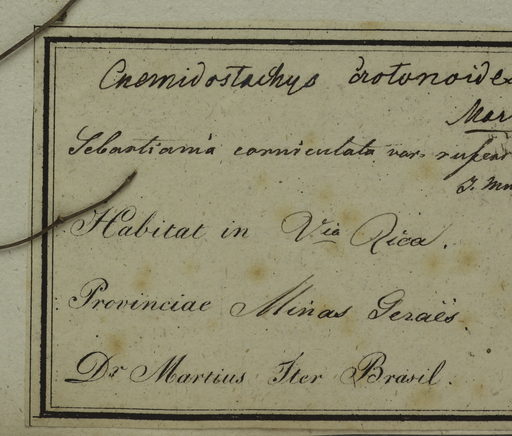 Cnemidostachys crotonoides
Mar
Sebastiania corniculata var.
J. Mu
Habitat in Va Rica.
Provinciae Minas Geraës
Dr Martius Iter Brasil.